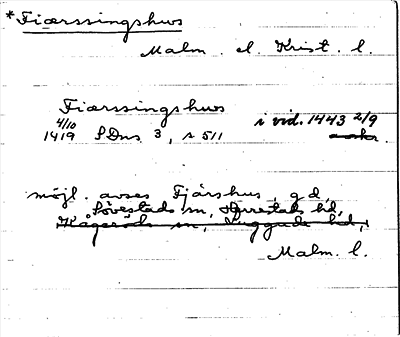 *Fiærssingshws
Malm. el. Krist. l.
Fiærssingshws i vid. 1443 2/9
4/10 1419 SDns 3, s 511
möjl. avses Fjärshus, gd,
Lövestads sn, Färs hd,
Kågeröds sn, Luggude hd,
Malm. l.